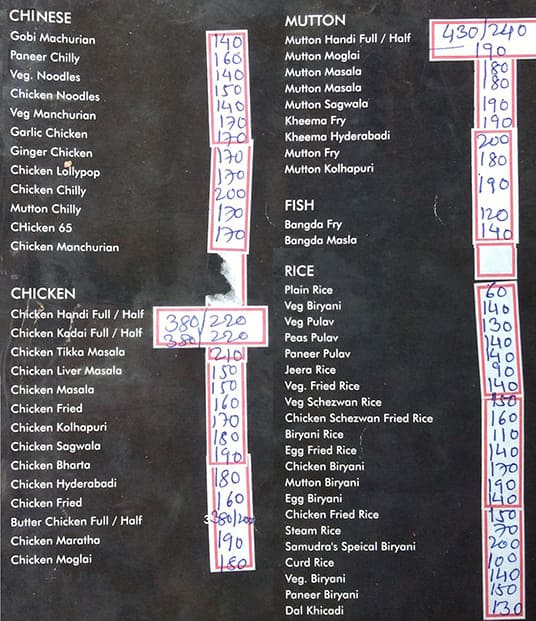 CHINESE
Gobi Machurian 140
Paneer Chilly 160
Veg. Noodles 140
Chicken Noodles 150
Veg Manchurian 140
Garlic Chicken 170
Ginger Chicken 170
Chicken Lollypop 170
Chicken Chilly 170
Mutton Chilly 200
CHicken 65 170
Chicken Manchurian 170
CHICKEN
Chicken Handi Full / Half 380/220
Chicken Kadai Full / Half 380/220
Chicken Tikka Masala 210
Chicken Liver Masala 150
Chicken Masala 150
Chicken Fried 160
Chicken Kolhapuri 170
Chicken Sagwala 180
Chicken Bharta 190
Chicken Hyderabadi 180
Chicken Fried 160
Butter Chicken Full / Half 380/200
Chicken Maratha 190
Chicken Moglai 180
MUTTON
Mutton Handi Full / Half 430/240
Mutton Moglai 190
Mutton Masala 180
Mutton Masala 180
Mutton Sagwala 190
Kheema Fry 190
Kheema Hyderabadi 200
Mutton Fry 180
Mutton Kolhapuri 190
FISH
Bangda Fry 120
Bangda Masla 140
RICE
Plain Rice 60
Veg Biryani 140
Veg Pulav 130
Peas Pulav 140
Paneer Pulav 140
Jeera Rice 90
Veg. Fried Rice 140
Veg Schezwan Rice 150
Chicken Schezwan Fried Rice 160
Biryani Rice 110
Egg Fried Rice 140
Chicken Biryani 170
Mutton Biryani 190
Egg Biryani 140
Chicken Fried Rice 150
Steam Rice 70
Samudra's Speical Biryani 200
Curd Rice 100
Veg. Biryani 140
Paneer Biryani 150
Dal Khicadi 130